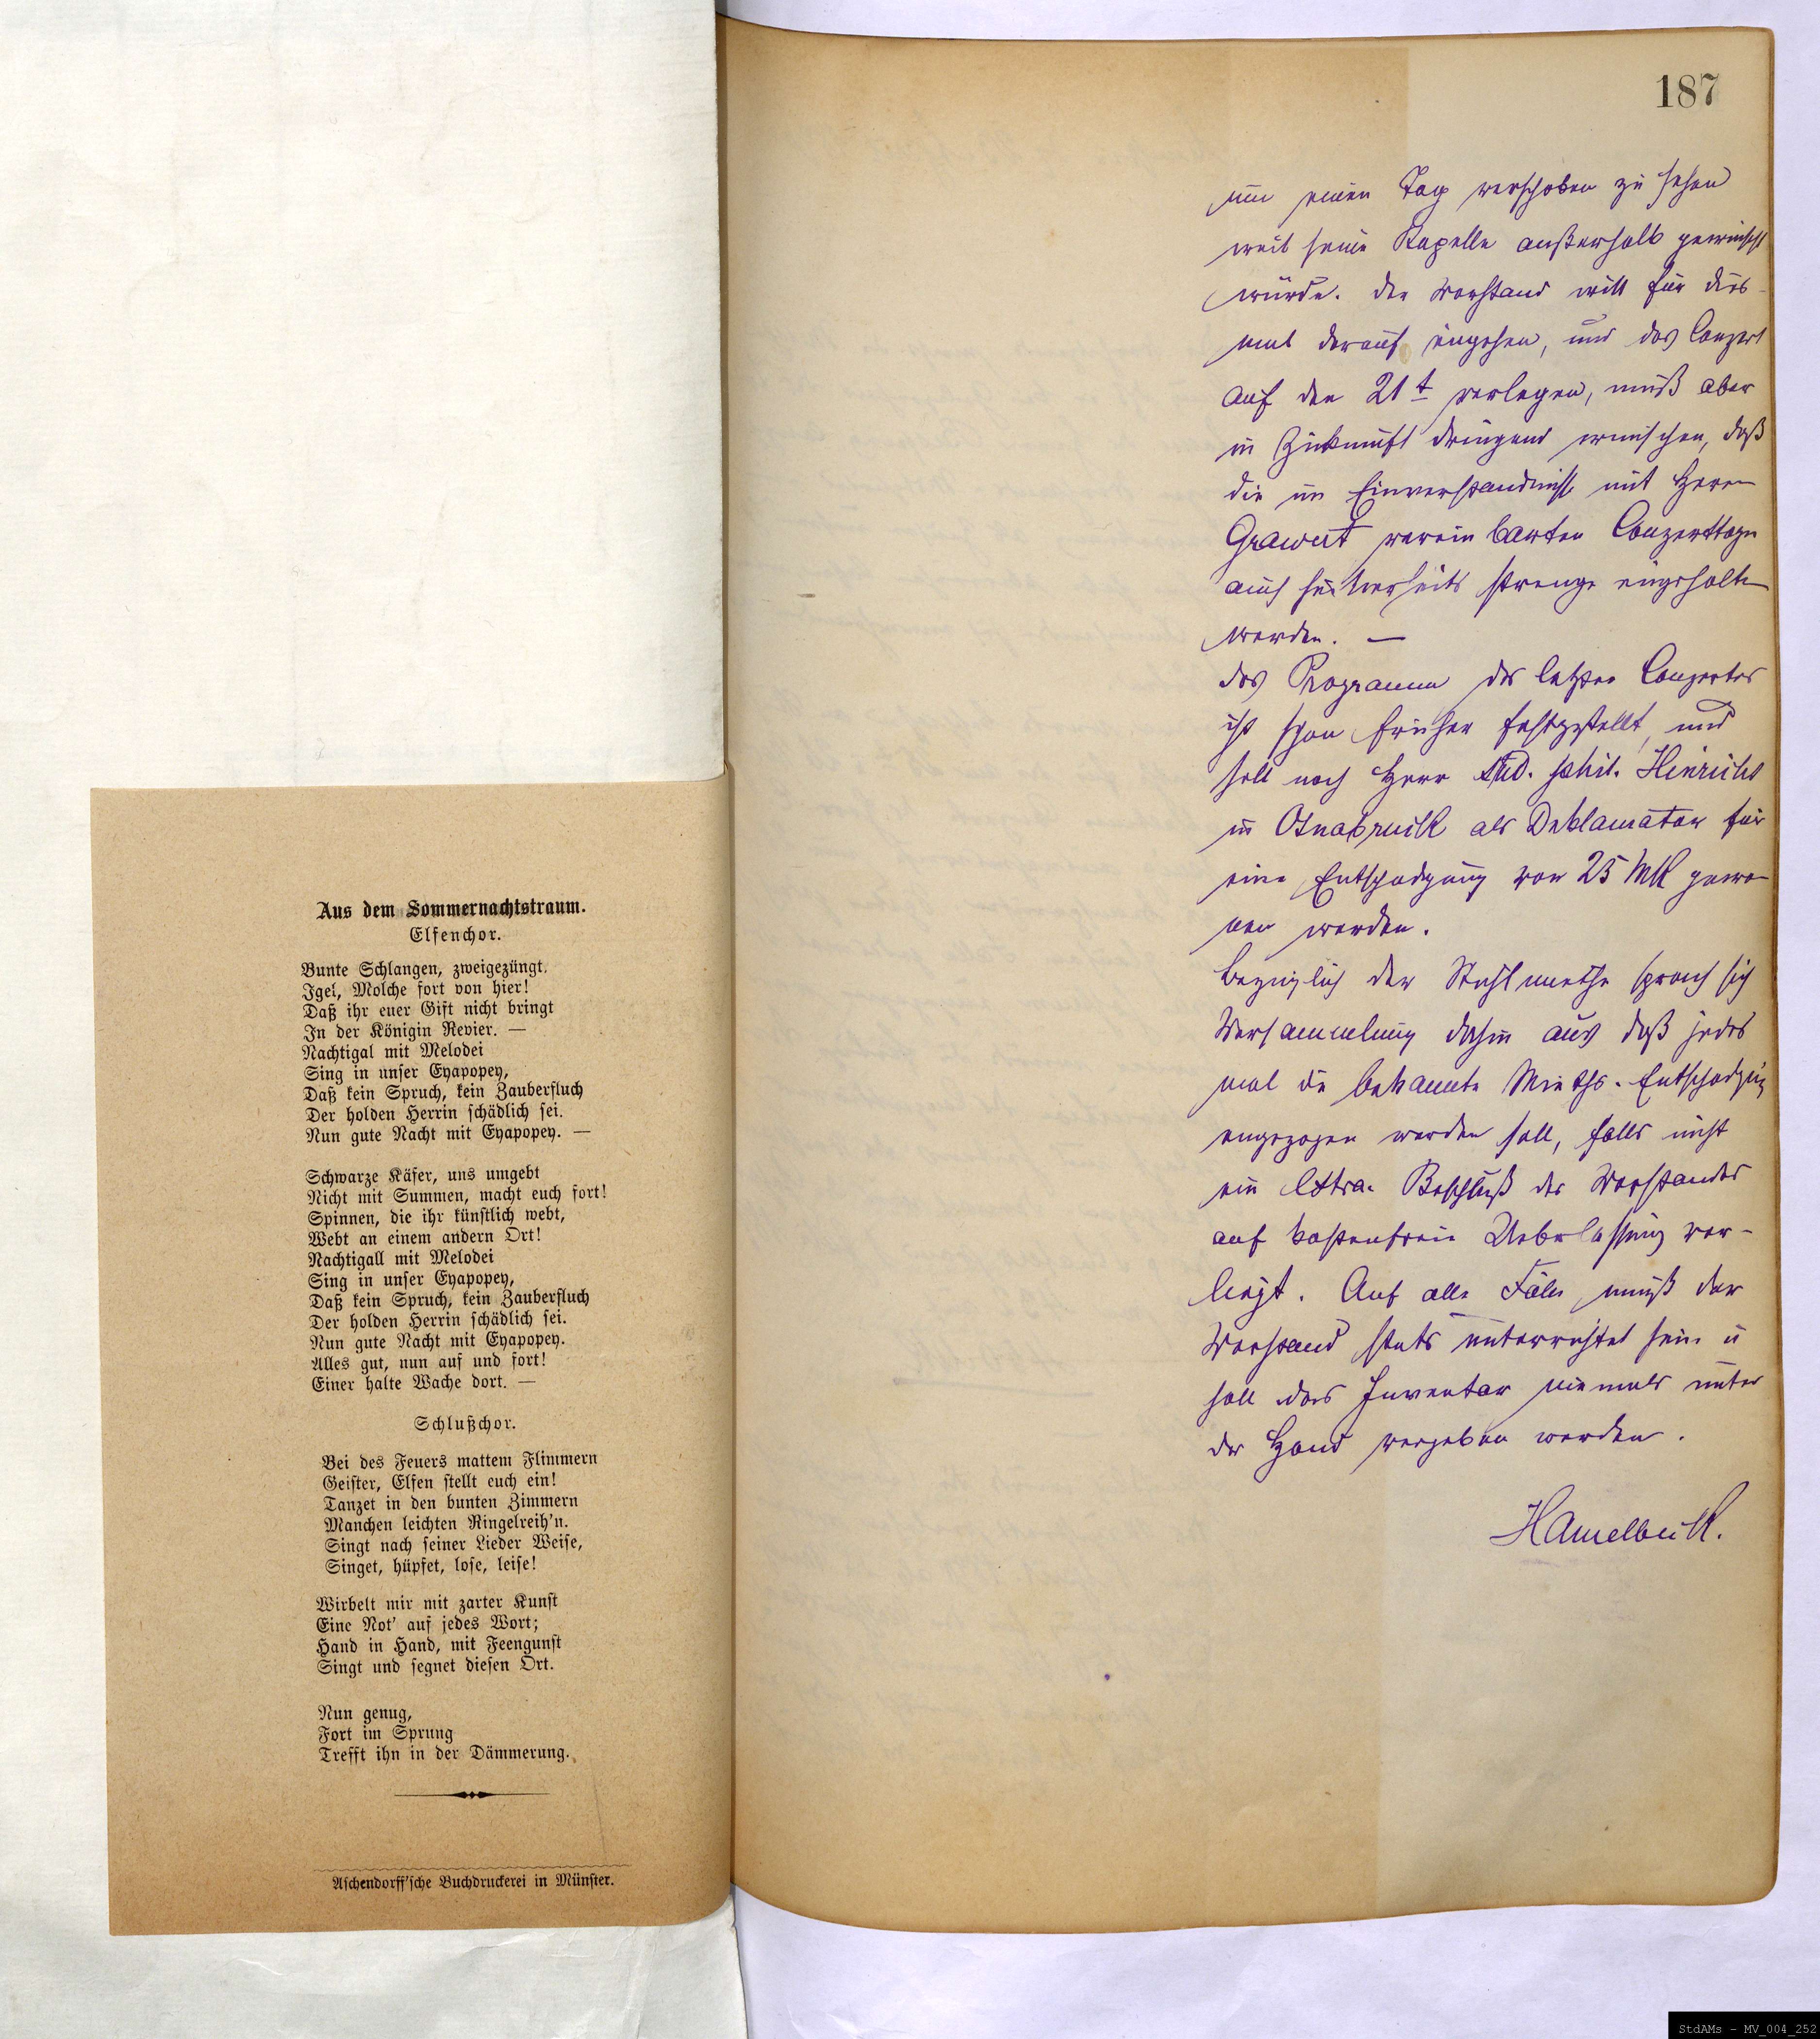 Aus dem Sommernachtstraum.
Elfenchor.
Bunte Schlangen, zweigezüngt,
Igel, Molche fort von hier!
Daß ihr euer Gift nicht bringt
In der Königin Revier. —
Nachtigal mit Melodei
Sing in unser Eyapopey,
Daß kein Spruch, kein Zauberfluch
Der holden Herrin schädlich sei.
Nun gute Nacht mit Eyapopey. —
Schwarze Käfer, uns umgebt
Nicht mit Summen, macht euch fort!
Spinnen, die ihr künstlich webt,
Webt an einem andern Ort!
Nachtigall mit Melodei
Sing in unser Eyapopey,
Daß kein Spruch, kein Zauberfluch
Der holden Herrin schädlich sei.
Nun gute Nacht mit Eyapopey.
Alles gut, nun auf und fort!
Einer halte Wache dort. —
Schlußchor.
Bei des Feuers mattem Flimmern
Geister, Elfen stellt euch ein!
Tanzet in den bunten Zimmern
Manchen leichten Ringelreih'n.
Singt nach seiner Lieder Weise,
Singet, hüpfet, lose, leise!
Wirbelt mir mit zarter Kunst
Eine Not' auf jedes Wort;
Hand in Hand, mit Feengunst
Singt und segnet diesen Ort.
Nun genug,
Fort im Sprung
Trefft ihn in der Dämmerung.
Aschendorff'sche Buchdruckerei in Münster.
187
um einen Tag verschoben zu sehen
weil seine Kapelle außerhalb gewünscht
würde. Der Vorstand will für dies-
mal darauf eingehen, und das Conzert
auf den 21t verlegen, muß aber
in Zukunft dringend wünschen, daß
die im Einverständniss mit Herrn
Grawert vereinbarten Conzerttage
auch seinerseits strenge eingehalten
werden. —
Das Programm des letzten Conzertes
ist schon früher festgestellt, und
soll noch Herr stud. phil. Hinrichs
in Osnabrück als Deklamator für
eine Entschädgung von 25 Mk gewo-
nen werden.
Bezüglich der Stuhlmiethe sprach sich
Versammlung dahin aus daß jedes
mal die bekannte Mieths-Entschädgung
eingezogen werden soll, falls nicht
ein Extra-Beschluß des Vorstandes
auf kostenfreie Ueberlassung vor-
liegt. Auf alle Fälle muß der
Vorstand stets unterrichtet sein u
soll das Inventar niemals unter
der Hand vergeben werden.
HAmelbeck.
StdAMs - MV_004_252